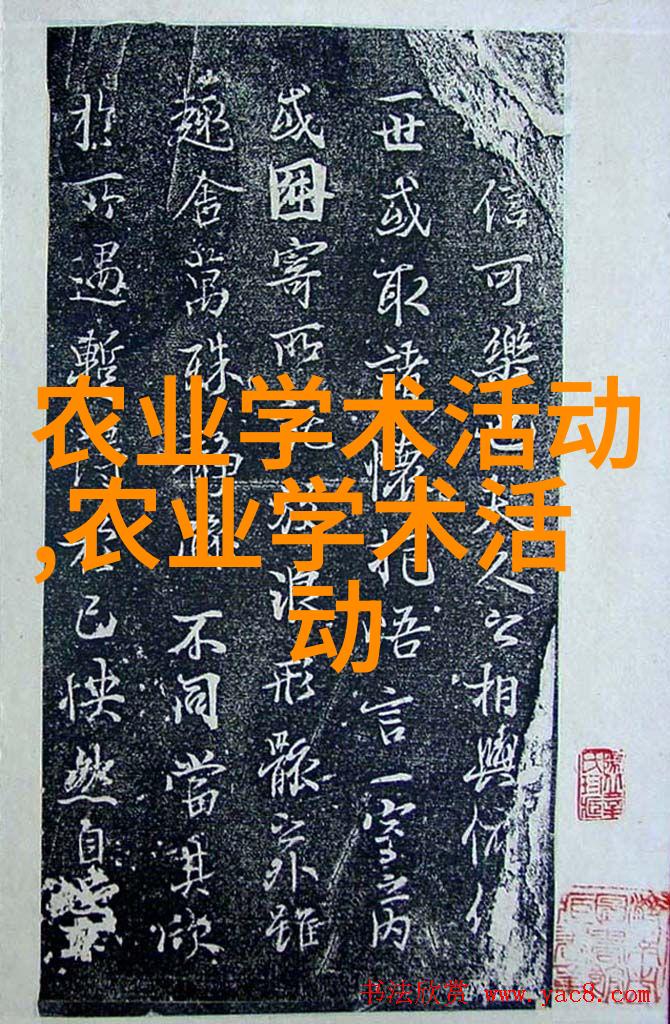 信可樂也夫人之相與俯仰
一世或取諸懷抱悟言一室之内
或因寄所託放浪形骸之外雖
趣舍萬殊靜躁不同當其欣
於所遇暫得於己怏然自
农业学术活动
,农业学术活
动
书法欣赏 www.yac8.com